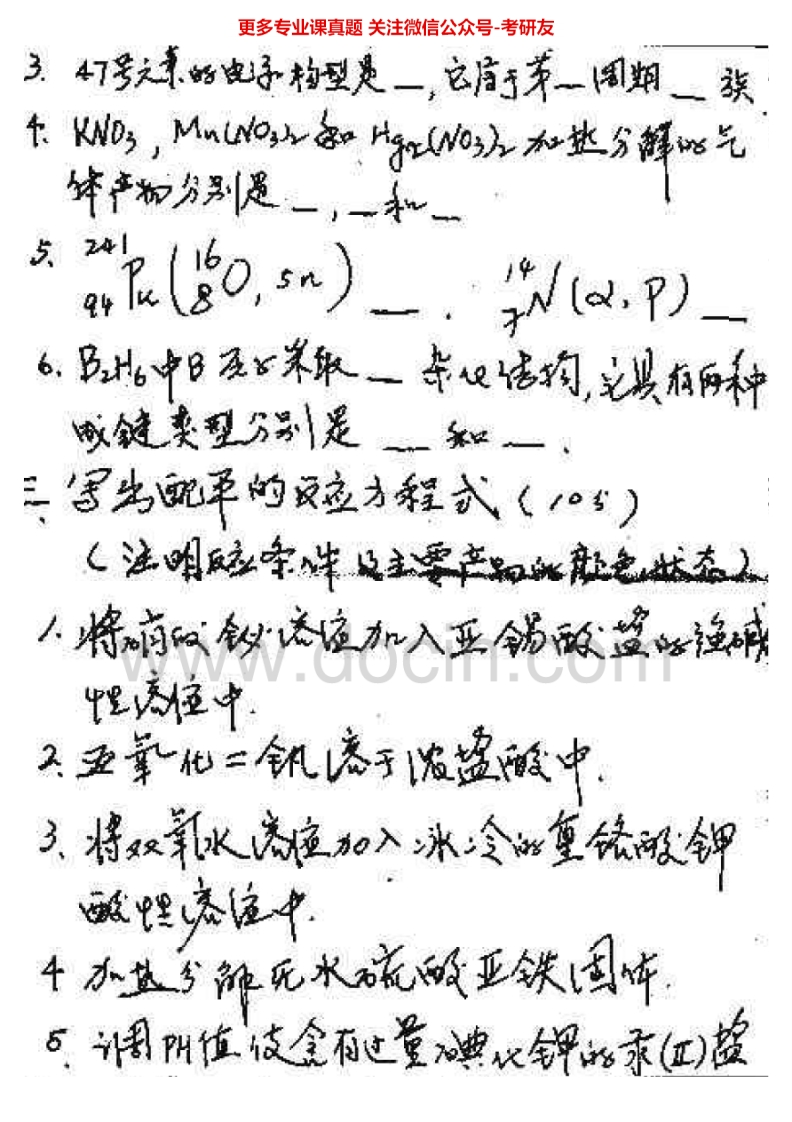 更多专业课真题 关注微信公众号-考研友
3. 47号元素的电子构型是_,它属于第_周期_族
4. KNO3, Mn(NO3)2和Hg2(NO3)2加热分解的气
体产物分别是_,_和_
5. ²⁴¹₉₄Pu(¹⁶₈O, 5n)_. ¹⁴₇N(α, P)_
6. B2H6中B原子采取_杂化结构,它具有两种
成键类型分别是_和_.
三、写出配平的反应方程式(10分)
(注明反应条件及主要产物的颜色、状态)
1. 将硝酸铋溶液加入亚锡酸盐的强碱
性溶液中.
www.docin.com
2. 五氧化二钒溶于浓盐酸中.
3. 将双氧水溶液加入冰冷的重铬酸钾
酸性溶液中.
4 加热分解无水硫酸亚铁固体.
5. 调PH值使含有过量碘化钾的汞(Ⅱ)盐